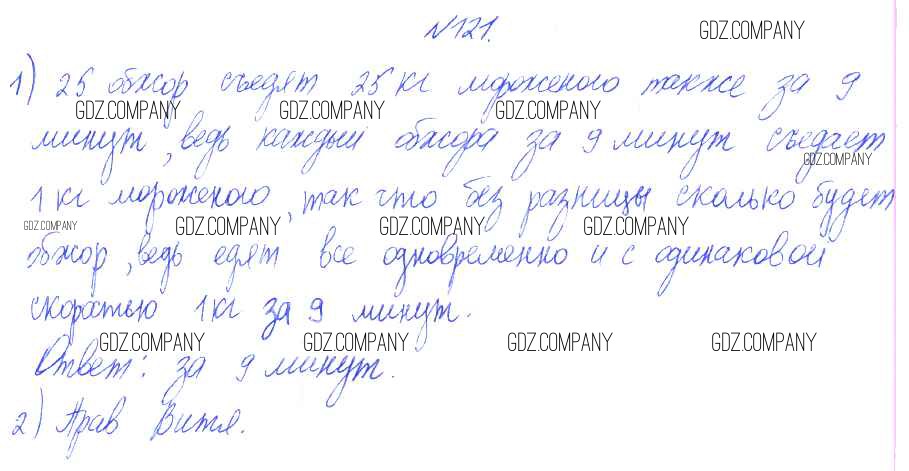 №121. GDZ.COMPANY
1) 25 обжор съедят 25 кг мороженого также за 9
GDZ.COMPANY GDZ.COMPANY GDZ.COMPANY
минут, ведь каждый обжора за 9 минут съедает
GDZ.COMPANY
1 кг мороженого, так что без разницы сколько будет
GDZ.COMPANY GDZ.COMPANY GDZ.COMPANY GDZ.COMPANY
обжор, ведь едят все одновременно и с одинаковой
скоростью 1 кг за 9 минут.
GDZ.COMPANY GDZ.COMPANY GDZ.COMPANY GDZ.COMPANY
Ответ: за 9 минут.
2) Прав Витя.